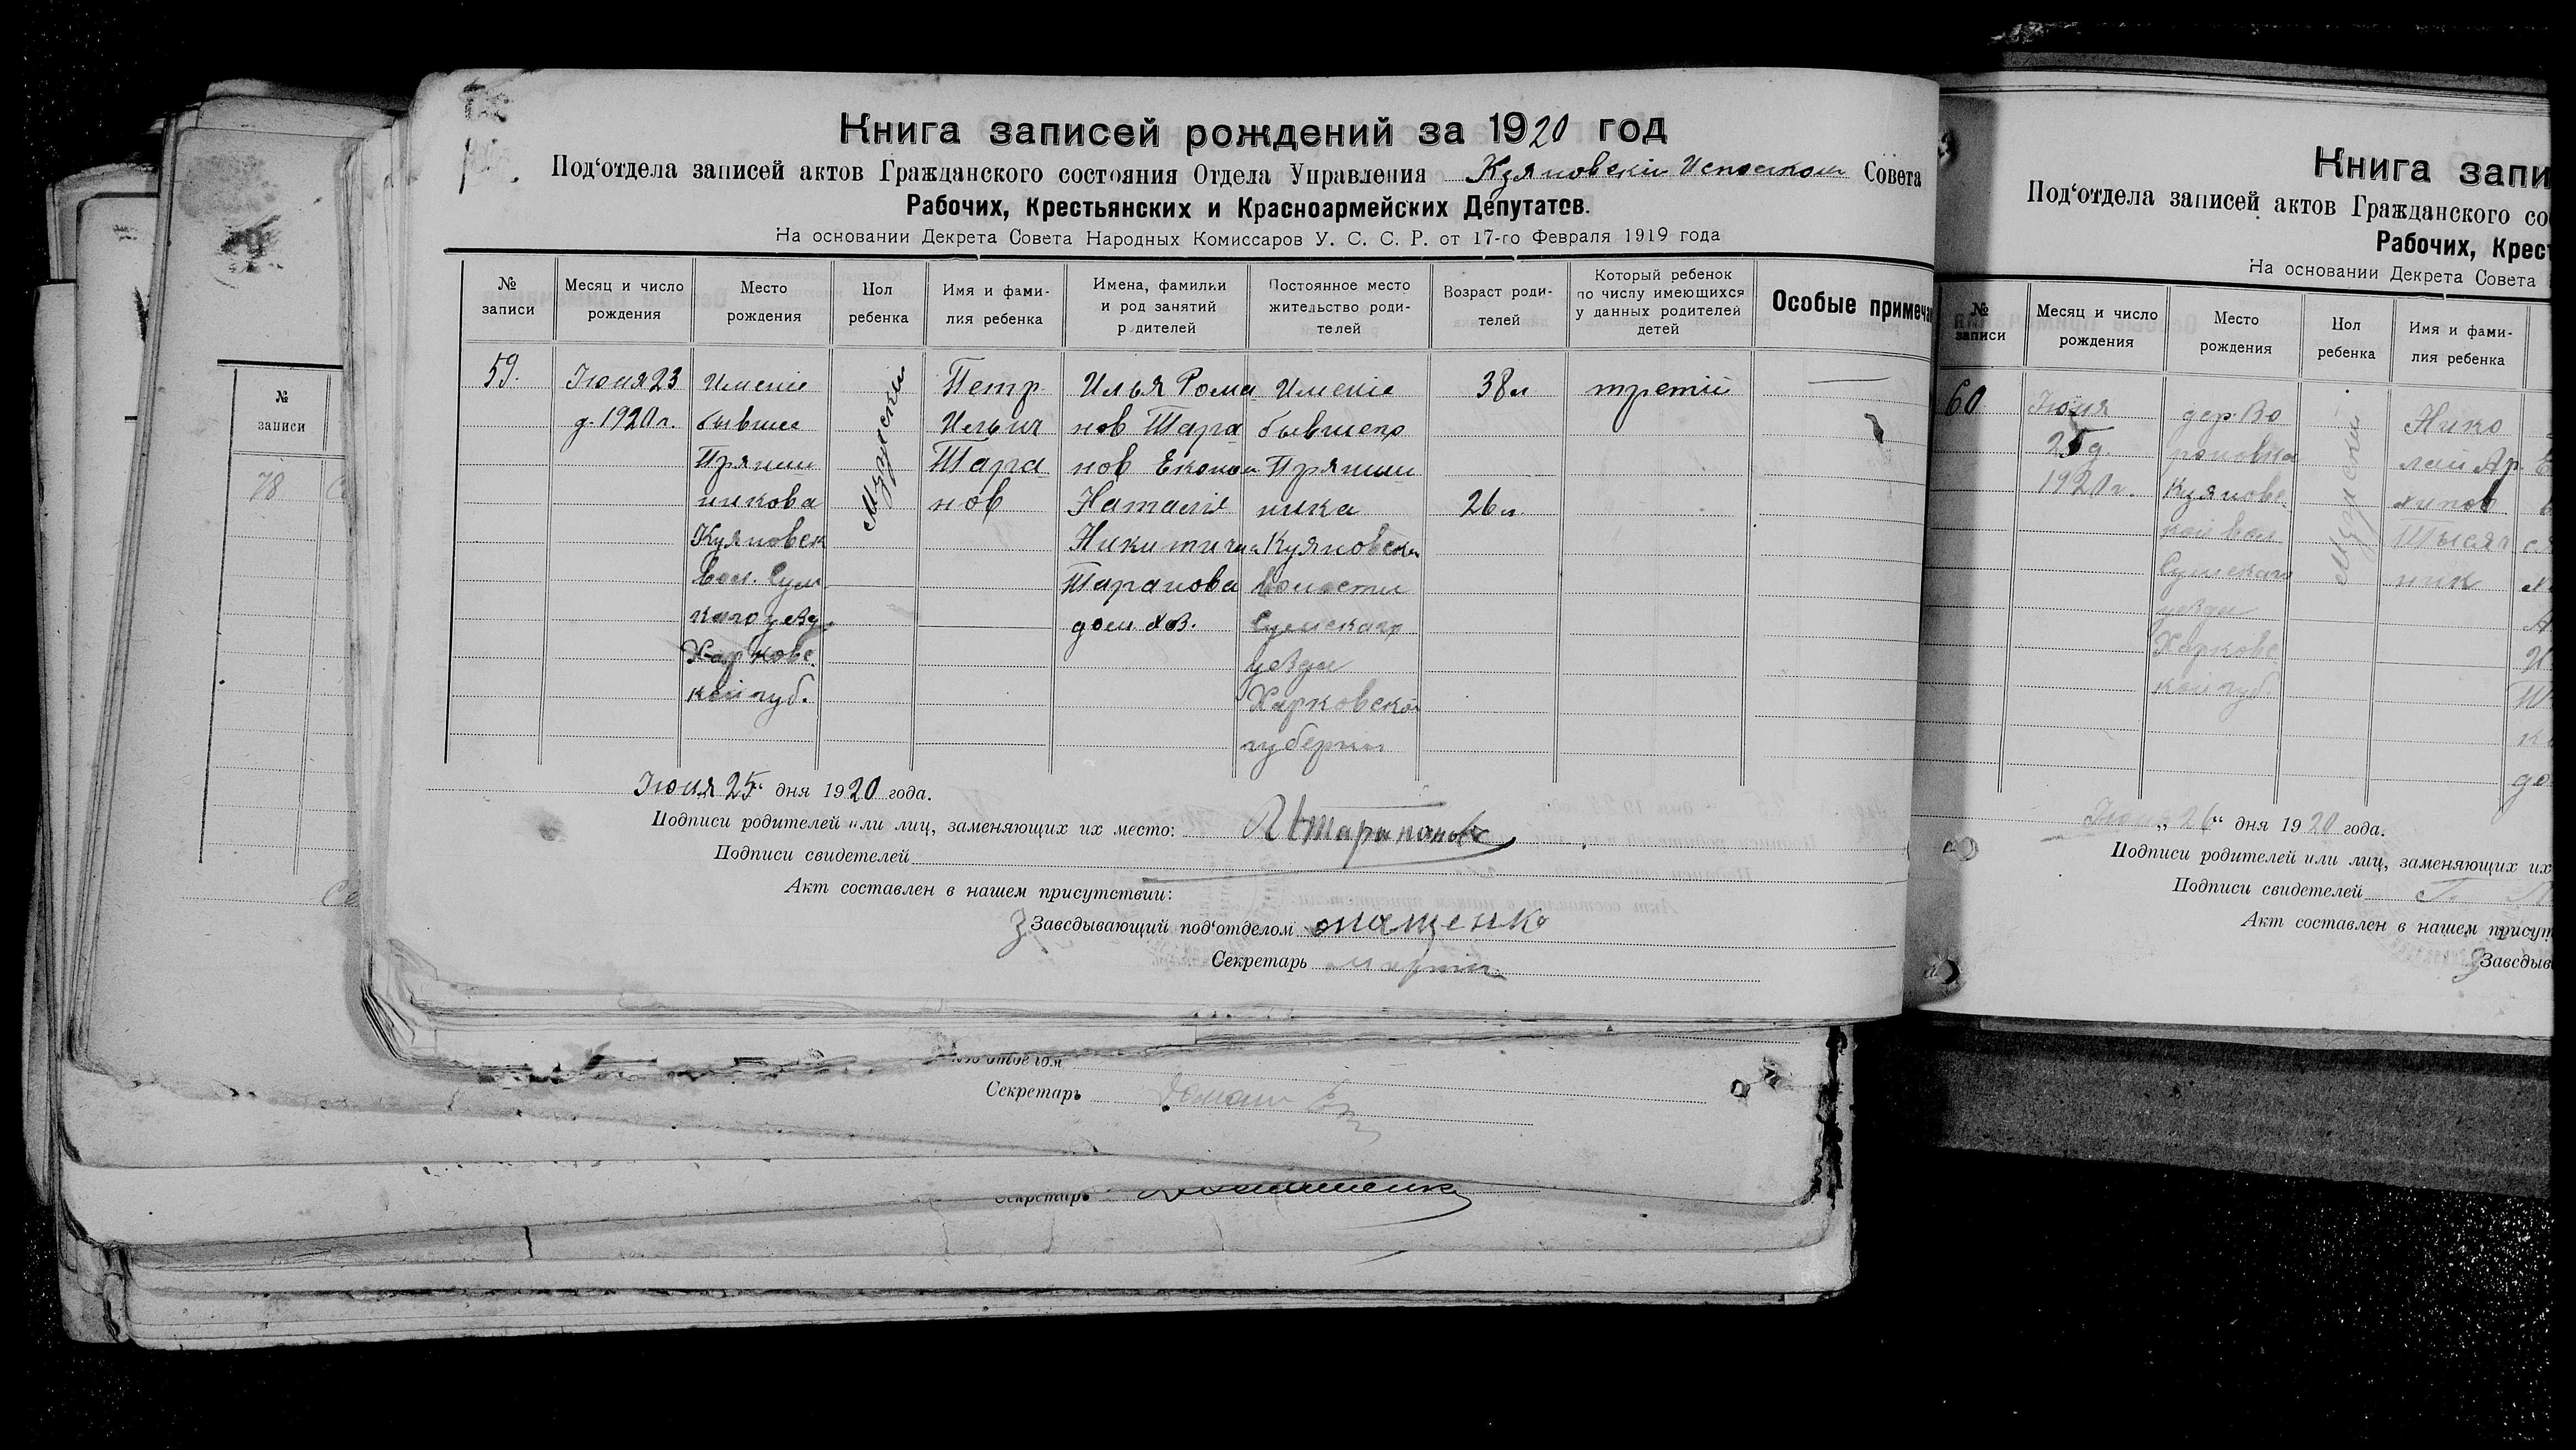 Книга записей рождений за 1920 год
Под‘отдела записей актов Гражданского состояния Отдела Управления Куяновскiй Совета
Рабочих, Крестьянских и Красноармейских Депутатов.
На основании Декрета Совета Народных Комиссаров У. С. С. Р. от 17-го Февраля 1919 года
№ записи
Месяц и число рождения
Место рождения
Пол ребенка
Имя и фами-
лия ребенка
Имена, фамилии
и род занятий
родителей
Постоянное место
жительство роди-
телей
Возраст роди-
телей
Который ребенок
по числу имеющихся
у данных родителей
детей
Особые примеча
59.
Июня 23
д. 1920 г.
Именiе
бывшее
Пряниш
никова
Куяновск
вол. Сумс
каго уезд.
Харковс
кой губ.
Мужски
Петр
Ильич
Тара
нов
Илья Рома
нов Тара
нов Економ
Наталiя
Никитична
Таранова
дом. хоз.
Именiе
бывшего
Пряниш
ника
Куяновской
волости
Сумскаго
уезда
Харковской
губернiи
38 л
26 л.
третiй
Июня 25 дня 1920 года.
Подписи родителей или лиц, заменяющих их место:
Подписи свидетелей
Акт составлен в нашем присутствии:
Заведывающий под‘отделом
Секретарь
Секретарь
Секретарь
№
записи
78
Книга запи
Под‘отдела записей актов Гражданского со
Рабочих, Крест
На основании Декрета Совета
№
записи
Месяц и число
рождения
Место
рождения
Пол
ребенка
Имя и фами-
лия ребенка
60
Июня
25 д.
1920 г.
дер. Во
роновка
Куяновс
кой вол
Сумскаго
уезда
Харковс
кой губ.
Мужски
Нико
лай Ар
хипов
Тысяч
ник
„26“ дня 1920 года.
Подписи родителей или лиц, заменяющих их
Подписи свидетелей
Акт составлен в нашем присут
Заведыв